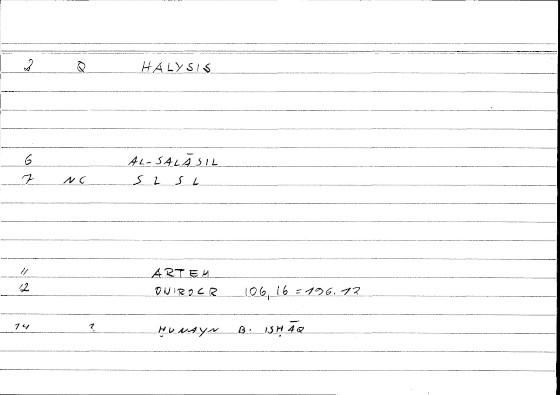 2 Q HALYSIS
6 AL-SALĀSIL
7 NC S L S L
11 ARTEM
12 ONIROCR 106, 16 = 196.12
14 ? ḤUNAYN B. ISḤĀQ